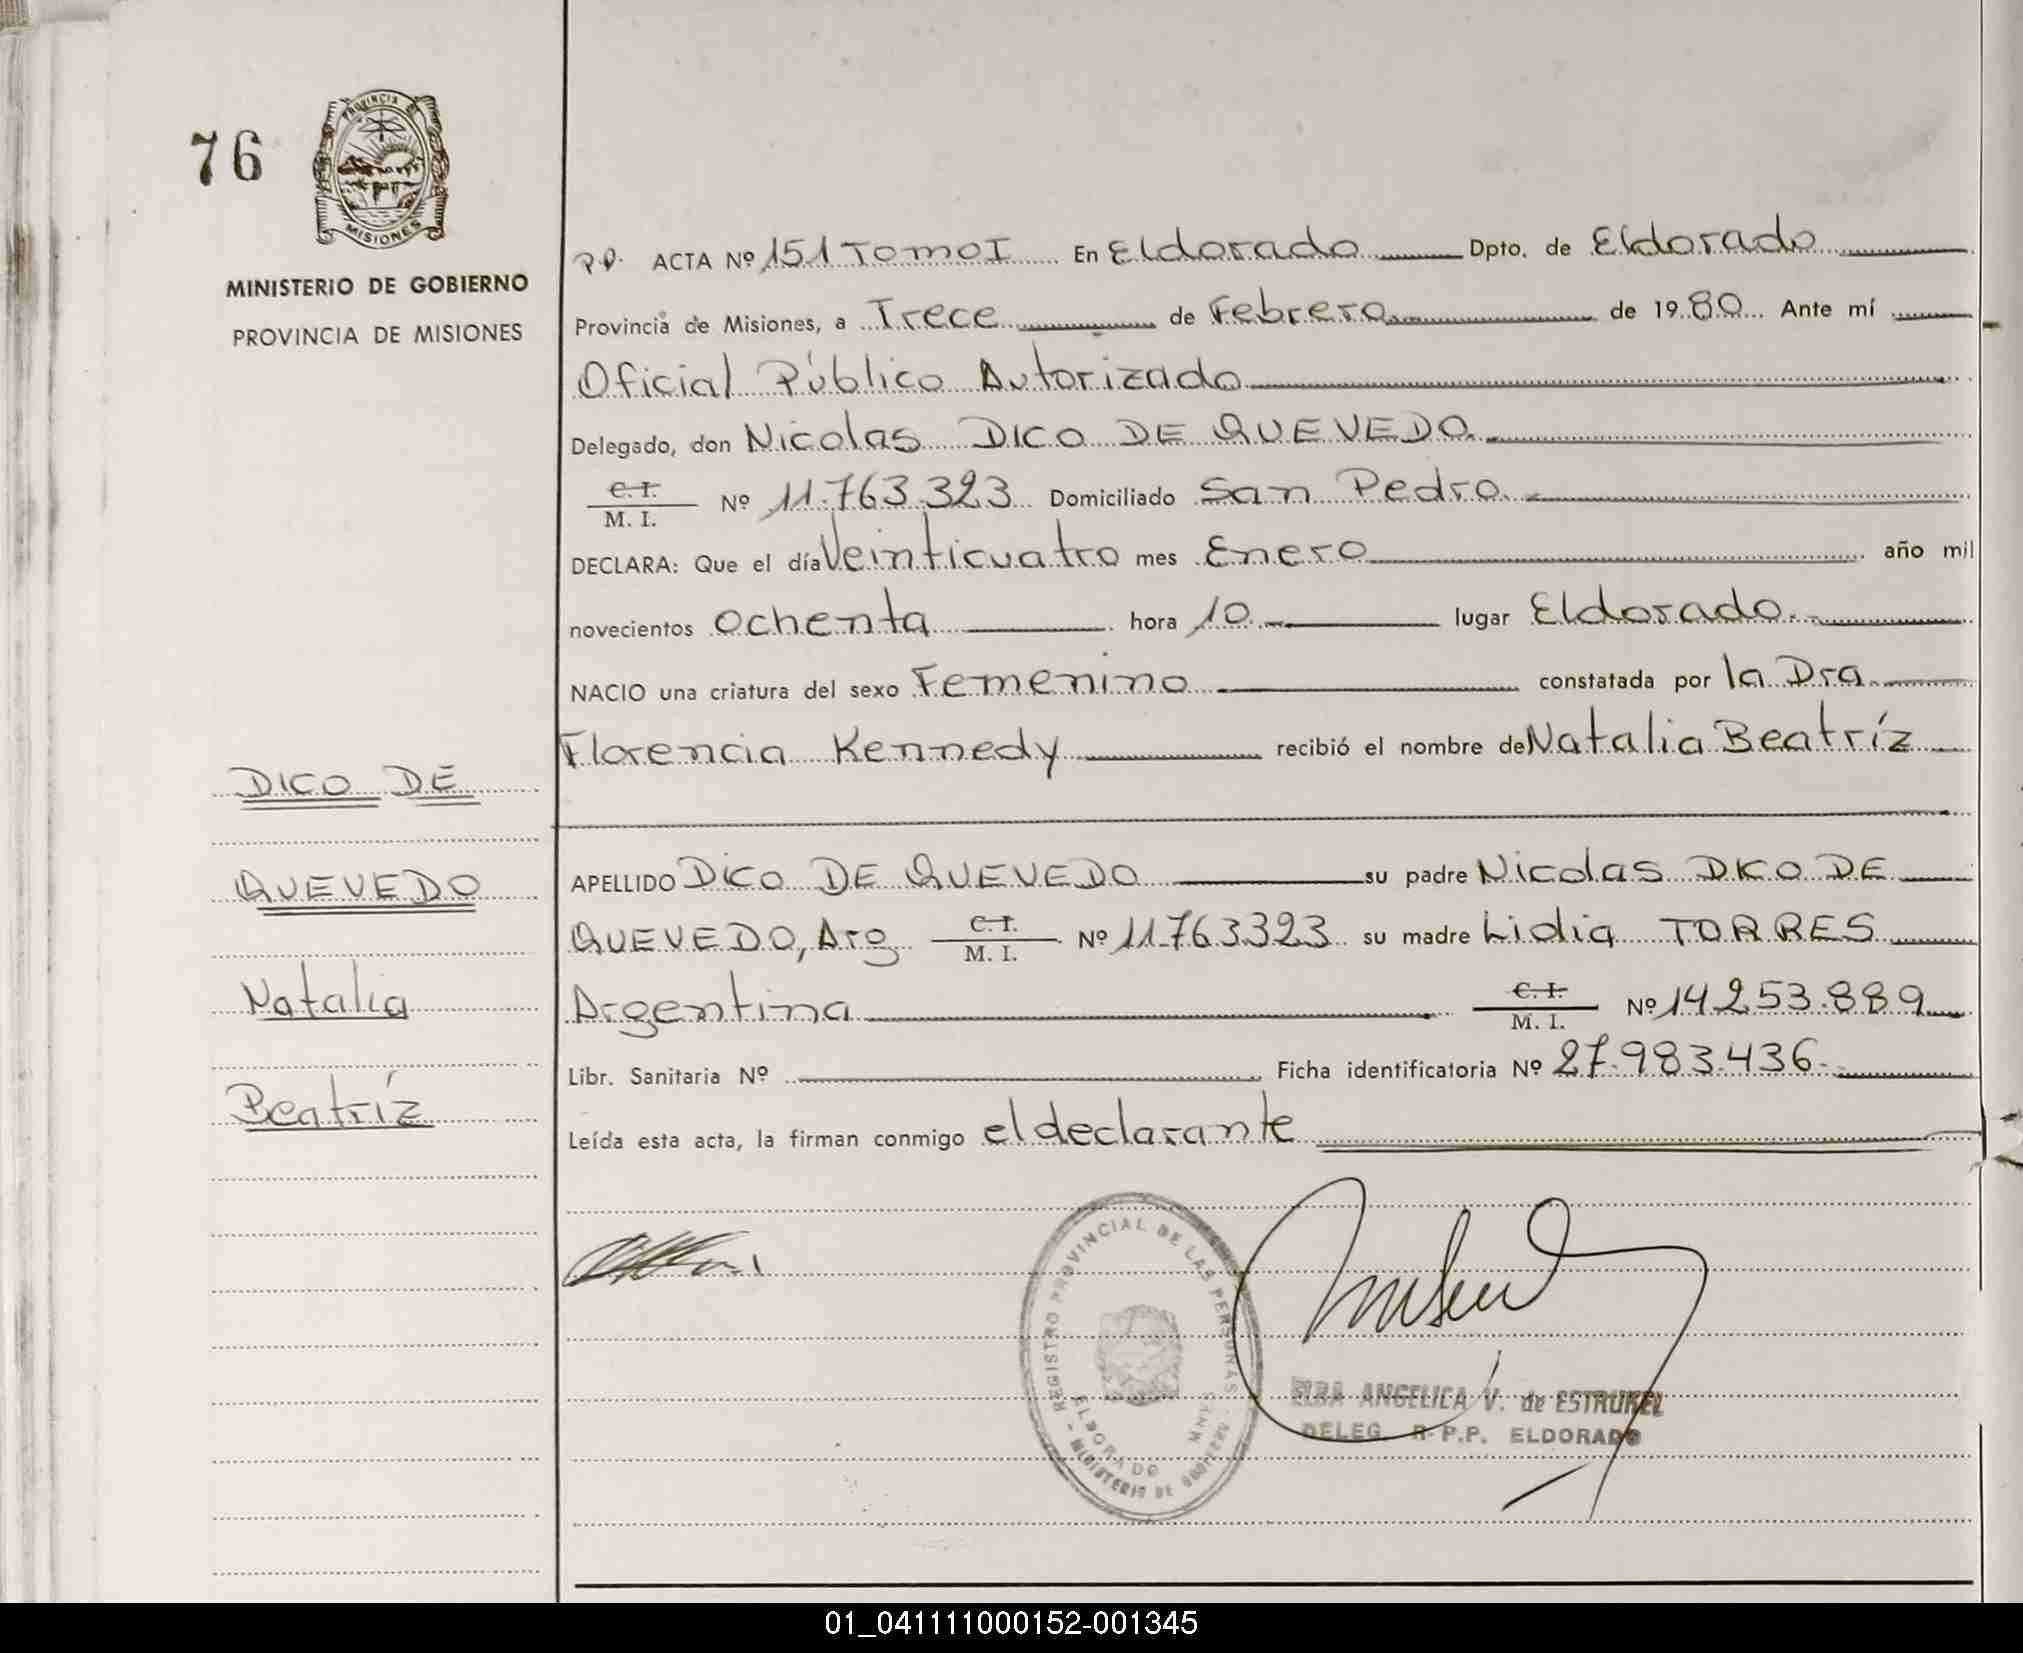 76
PROVINCIA DE
MISIONES
MINISTERIO DE GOBIERNO
PROVINCIA DE MISIONES
P.D. ACTA Nº 151 Tomo I En Eldorado Dpto. de Eldorado
Provincia de Misiones, a Trece de Febrero de 1980 Ante mí
Oficial Público Autorizado
Delegado, don Nicolas DICO DE QUEVEDO
C.I.
M. I. Nº 11.763.323 Domiciliado San Pedro
DECLARA: Que el día Veinticuatro mes Enero año mil
novecientos ochenta hora 10 lugar Eldorado
NACIO una criatura del sexo Femenino constatada por la Dra
Florencia Kennedy recibió el nombre de Natalia Beatríz
APELLIDO DICO DE QUEVEDO su padre Nicolas DICO DE
QUEVEDO, Arg C.I.
M. I. Nº 11.763323 su madre Lidia TORRES
Argentina C.I.
M. I. Nº 14.253.889
Libr. Sanitaria Nº Ficha identificatoria Nº 27.983.436
Leída esta acta, la firman conmigo el declarante
DICO DE
QUEVEDO
Natalia
Beatríz
REGISTRO PROVINCIAL DE LAS PERSONAS
ELDORADO
MINISTERIO DE GOBIERNO
ELBA ANGELICA V. de ESTRUKEL
DELEG. R.P.P. ELDORADO
01_041111000152-001345